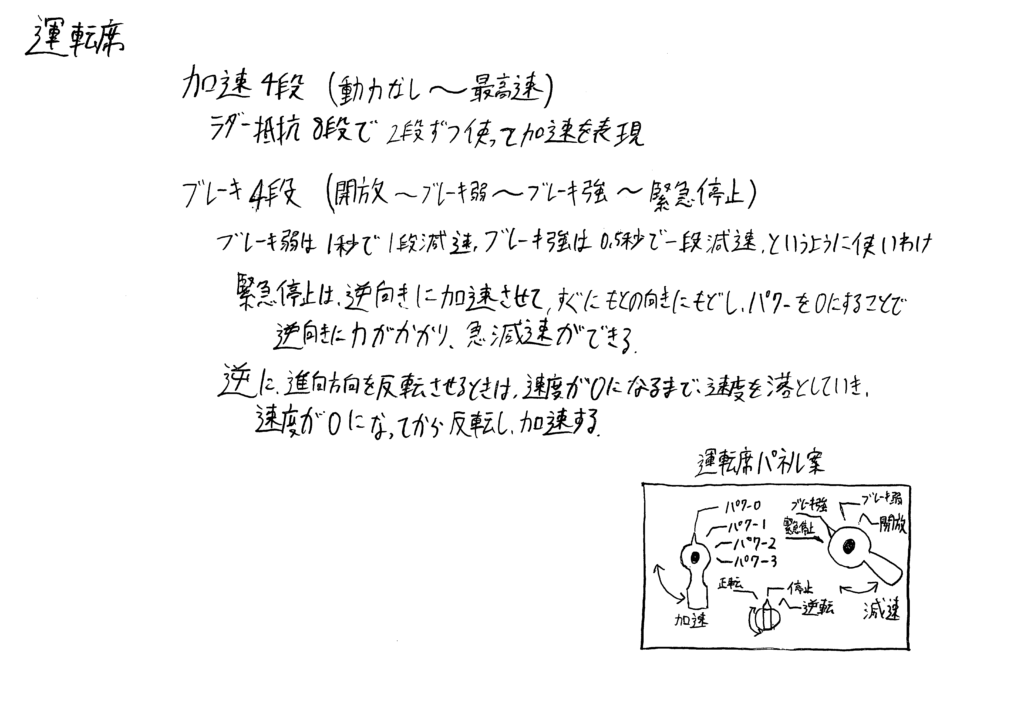 運転席
加速4段 (動力なし～最高速)
ラダー抵抗8段で2段ずつ使って加速を表現
ブレーキ4段 (開放～ブレーキ弱～ブレーキ強～緊急停止)
ブレーキ弱は1秒で1段減速、ブレーキ強は0.5秒で一段減速、というように使いわけ
緊急停止は、逆向きに加速させて、すぐにもとの向きにもどし、パワーを0にすることで
逆向きに力がかかり、急減速ができる。
逆に、進向方向を反転させるときは、速度が0になるまで、速度を落としていき、
速度が0になってから反転し、加速する。
運転席パネル案
パワー0
パワー1
パワー2
パワー3
加速
ブレーキ強
ブレーキ弱
緊急停止
開放
減速
正転
停止
逆転